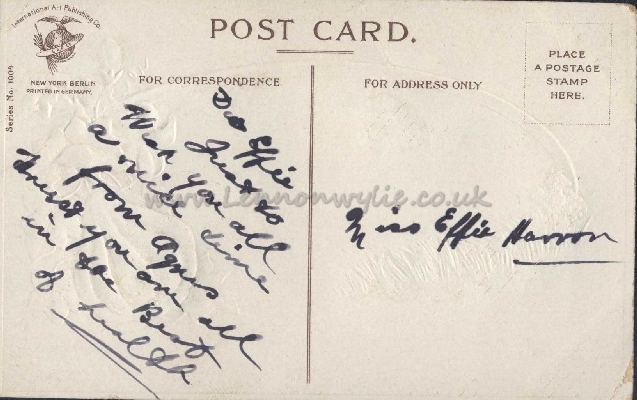 International Art Publishing Co.
NEW YORK BERLIN
PRINTED IN GERMANY.
Series No. 1009
POST CARD.
FOR CORRESPONDENCE
FOR ADDRESS ONLY
PLACE
A POSTAGE
STAMP
HERE.
D Effie
Just to
Wish you all
a nice time
from Agnes
trust you are all
in the Best
of health
Miss Effie Harron
www.Lennonwylie.co.uk